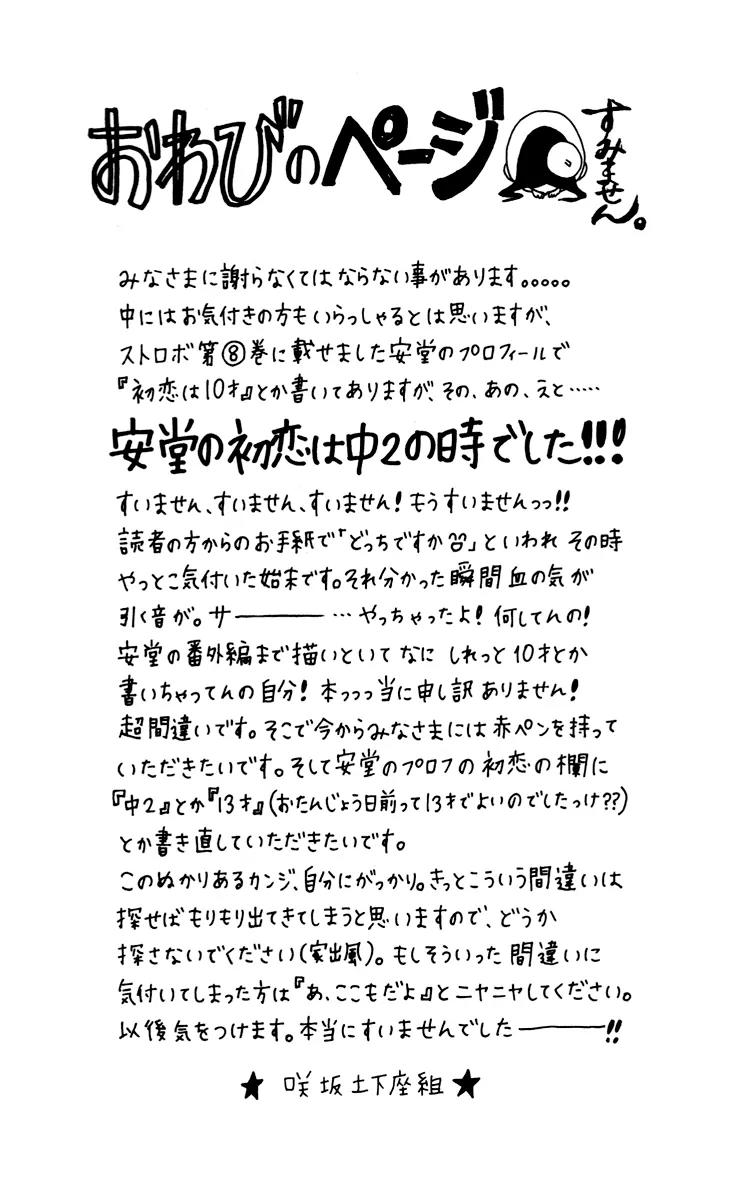 おわびのページ
すみません。
みなさまに謝らなくてはならない事があります。。。。。
中にはお気付きの方もいらっしゃるとは思いますが、
ストロボ第⑧巻に載せました安堂のプロフィールで
『初恋は10才』とか書いてありますが、その、あの、えと……
安堂の初恋は中2の時でした!!!
すいません、すいません、すいません!もうすいませんっっ!!
読者の方からのお手紙で「どっちですか」といわれ その時
やっとこ気付いた始末です。それ分かった瞬間血の気が
引く音が。サ――――…やっちゃったよ!何してんの!
安堂の番外編まで描いといて なに しれっと10才とか
書いちゃってんの自分!本っっっ当に申し訳ありません!
超間違いです。そこで今からみなさまには赤ペンを持って
いただきたいです。そして安堂のプロフの初恋の欄に
『中2』とか『13才』(おたんじょう日前って13才でよいのでしたっけ??)
とか書き直していただきたいです。
このぬかりあるカンジ、自分にがっかり。きっとこういう間違いは
探せばもりもり出てきてしまうと思いますので、どうか
探さないでください(家出風)。もしそういった間違いに
気付いてしまった方は『あ、ここもだよ』とニヤニヤしてください。
以後気をつけます。本当にすいませんでした――――!!
★ 咲坂土下座組 ★